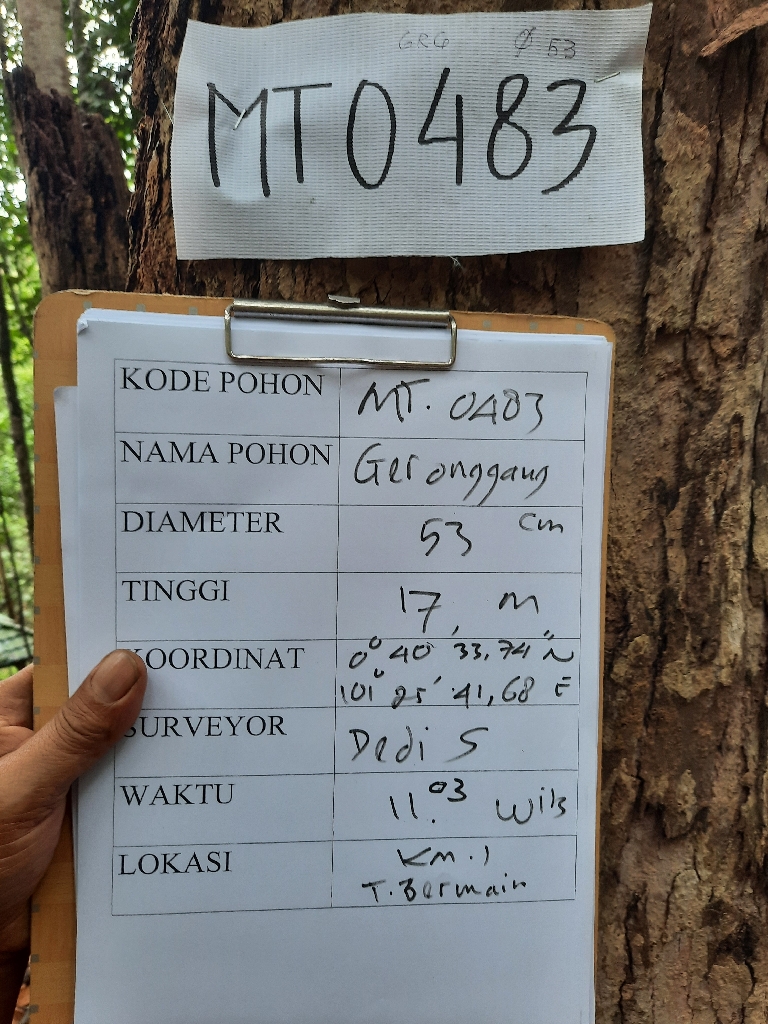 GRG Ø 53
MT0483
KODE POHON MT. 0483
NAMA POHON Geronggang
DIAMETER 53 cm
TINGGI 17, m
KOORDINAT 0° 40' 33,74" N
101° 25' 41,68 E
SURVEYOR Dedi S
WAKTU 11.03 Wib
LOKASI Km.1
T.Bermain